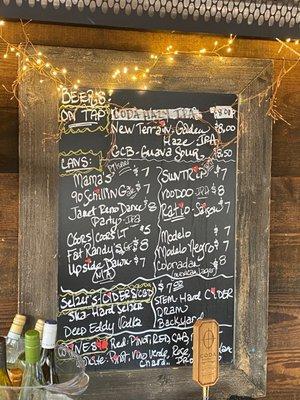 BEERS
ON TAP
New Terrain - Golden $8.00
Haze IPA
GCB - Guava Sour $8.50
CANS:
Mama's $7
90 Schilling $7
Janet Reno Dance $8
Party - IPA
Coors/Coors LT $5
Fat Randy's $8
Upside Dawn $7
(NA)
Suntrip $7
Voodoo IPA $8
Ratio - Saison $7
Modelo $7
Modelo Negro $7
Colorada $8
Selzer's/Ciders/CBD $7.50
Ska-Hard Selzer
Deep Eddy Vodka
Stem-Hard Cider
Dram
Backyard
Wines: Red: Pinot, Red, Cab
Pinot, Vino Verde, Rose
Chard.